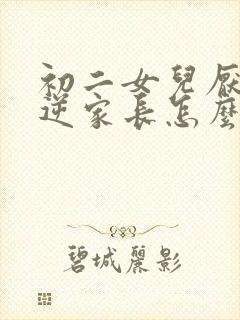 初二女兒厭
逆家長怎麼
碧城麗影